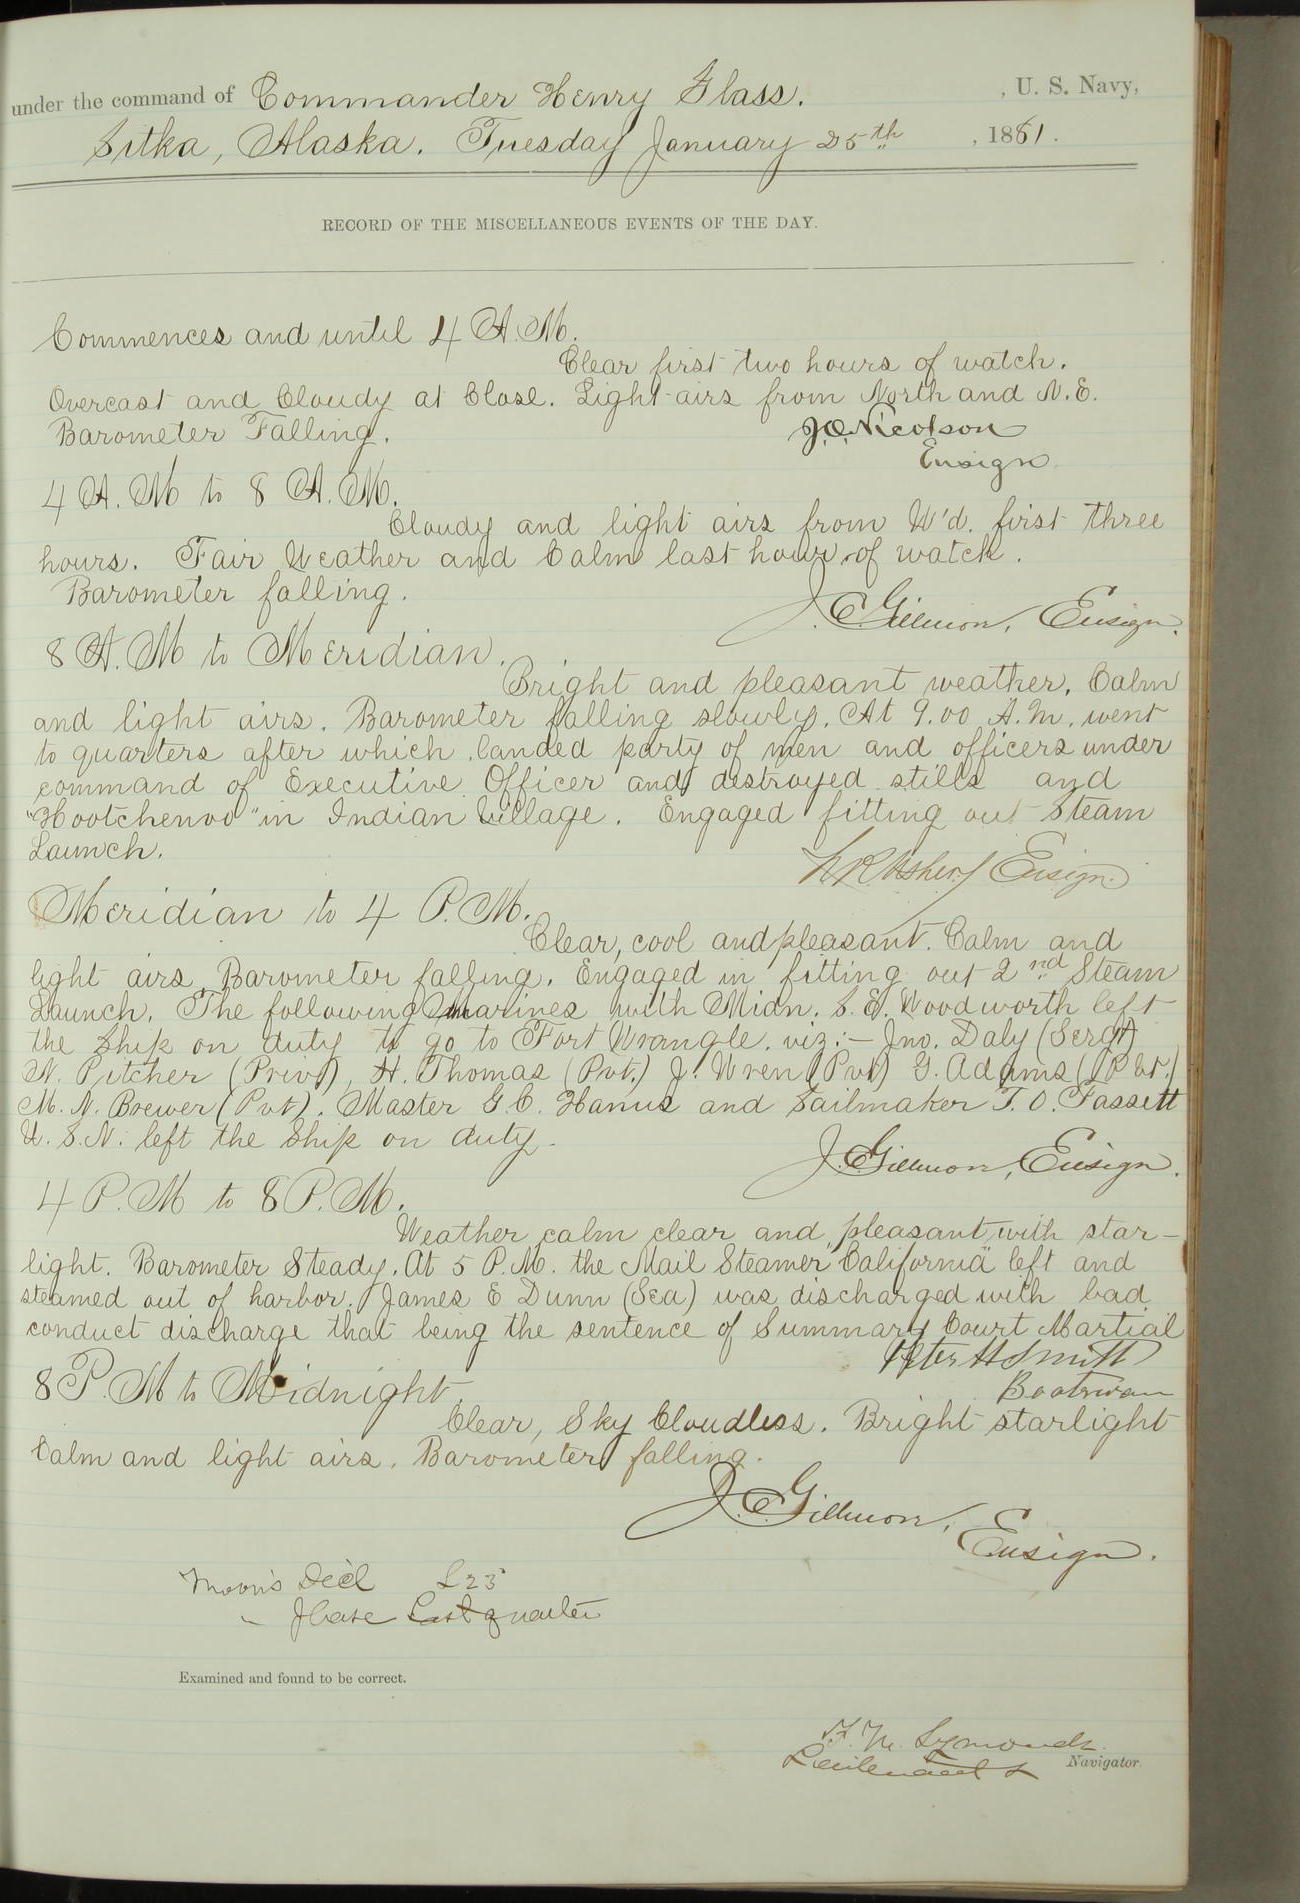 under the command of Commander Henry Glass. , U. S. Navy,
Sitka, Alaska. Tuesday January 25th , 1881.
RECORD OF THE MISCELLANEOUS EVENTS OF THE DAY.
Commences and until 4 A.M.
Clear first two hours of watch.
Overcast and Cloudy at Close. Light airs from North and N.E.
Barometer Falling.
J.O. Nicolson
Ensign
4 A.M to 8 A.M.
Cloudy and light airs from W'd. first three
hours. Fair Weather and Calm last hour of watch.
Barometer falling.
J.C. Gillmor, Ensign.
8 A.M to Meridian.
Bright and pleasant weather. Calm
and light airs. Barometer falling slowly. At 9.00 A.M. went
to quarters after which landed party of men and officers under
command of Executive Officer and destroyed stills and
"Hootchenoo" in Indian Village. Engaged fitting out Steam
Launch.
N R Usher, Ensign.
Meridian to 4 P.M.
Clear, cool and pleasant. Calm and
light airs, Barometer falling. Engaged in fitting out 2nd Steam
Launch. The following marines with Midn. S. E. Woodworth left
the ship on duty to go to Fort Wrangle. viz:- Jno. Daly (Sergt)
N. Pitcher (Privt), H. Thomas (Pvt.) J. Wren (Pvt) G. Adams (Pvt.)
M. N. Brewer (Pvt). Master G. C. Hanus and Sailmaker T. O. Fassett
U. S. N. left the ship on duty.
J.C. Gillmor, Ensign.
4 P.M to 8 P.M.
Weather calm clear and pleasant with star-
light. Barometer Steady. At 5 P.M. the Mail Steamer "California" left and
steamed out of harbor. James E Dunn (Sea) was discharged with bad
conduct discharge that being the sentence of Summary Court Martial
Peter H Smith
Boatswain
8 P.M to Midnight.
Clear, Sky Cloudless. Bright starlight
Calm and light airs. Barometer falling.
J.C. Gillmor,
Ensign.
Moon's Decl S 23°
" Phase Last quarter
Examined and found to be correct.
F. M. Symonds
Lieutenant & Navigator